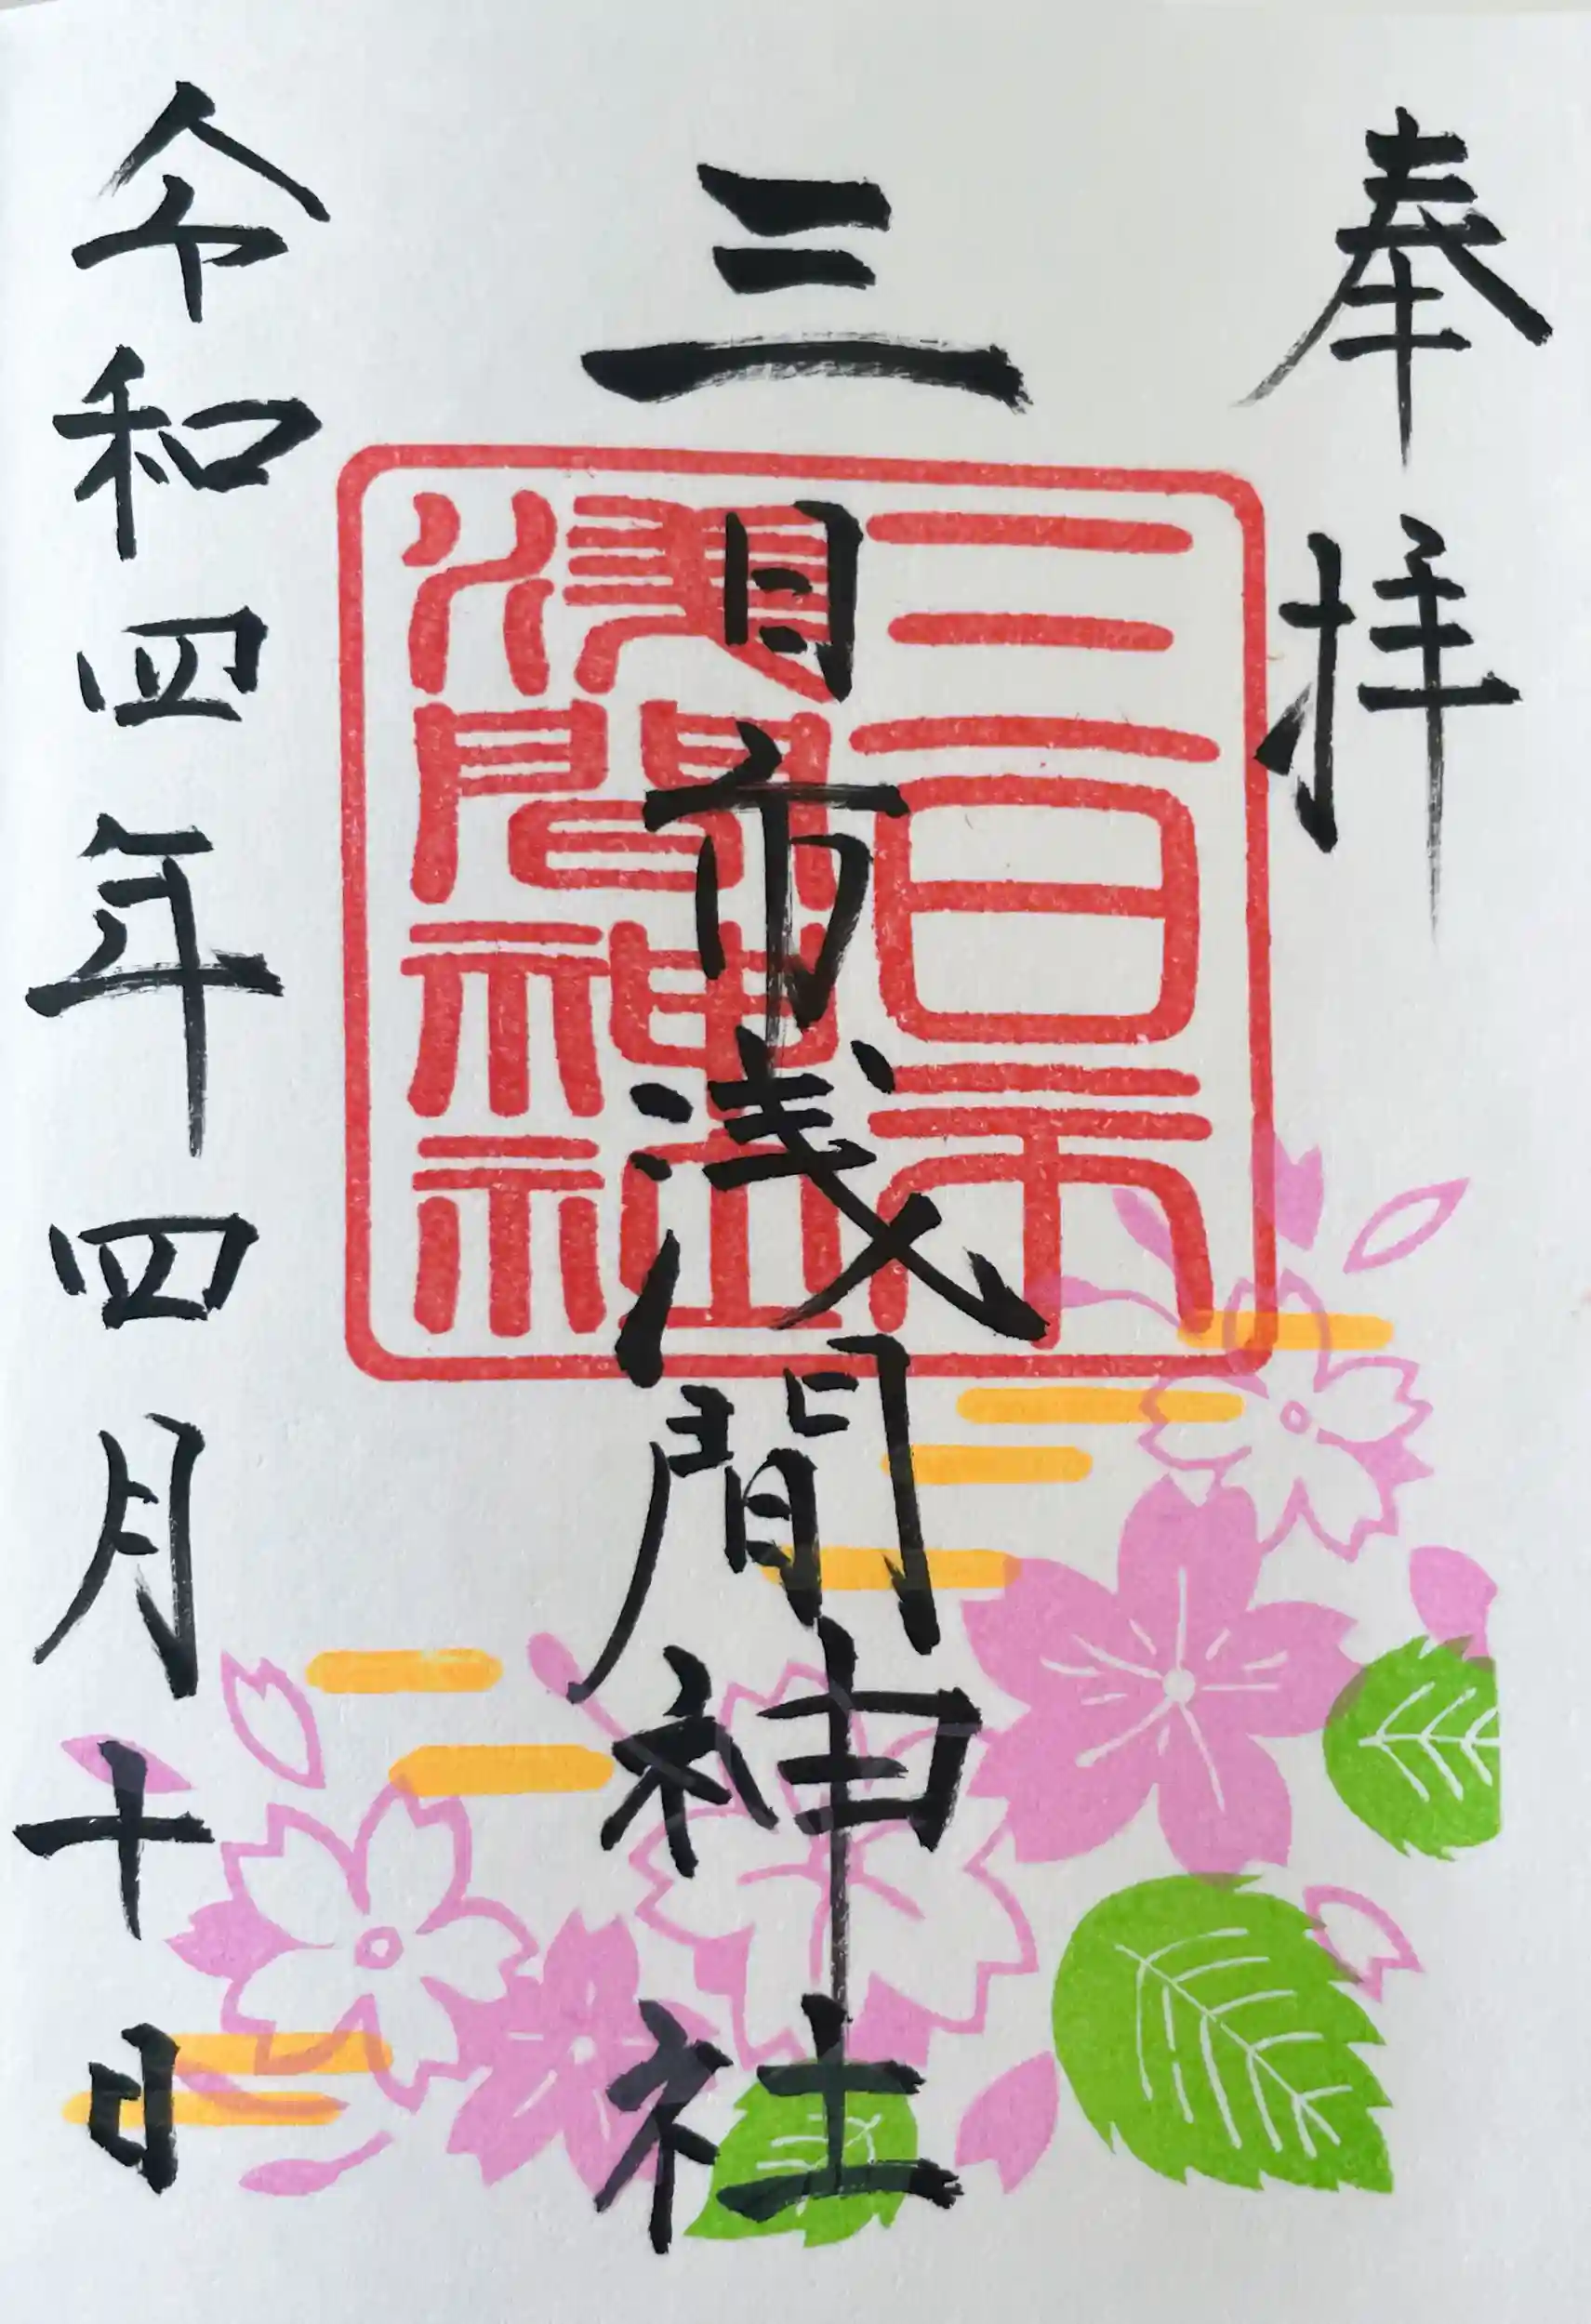 奉拝
三日市浅間神社
三日市
浅間神社
令和四年四月十日